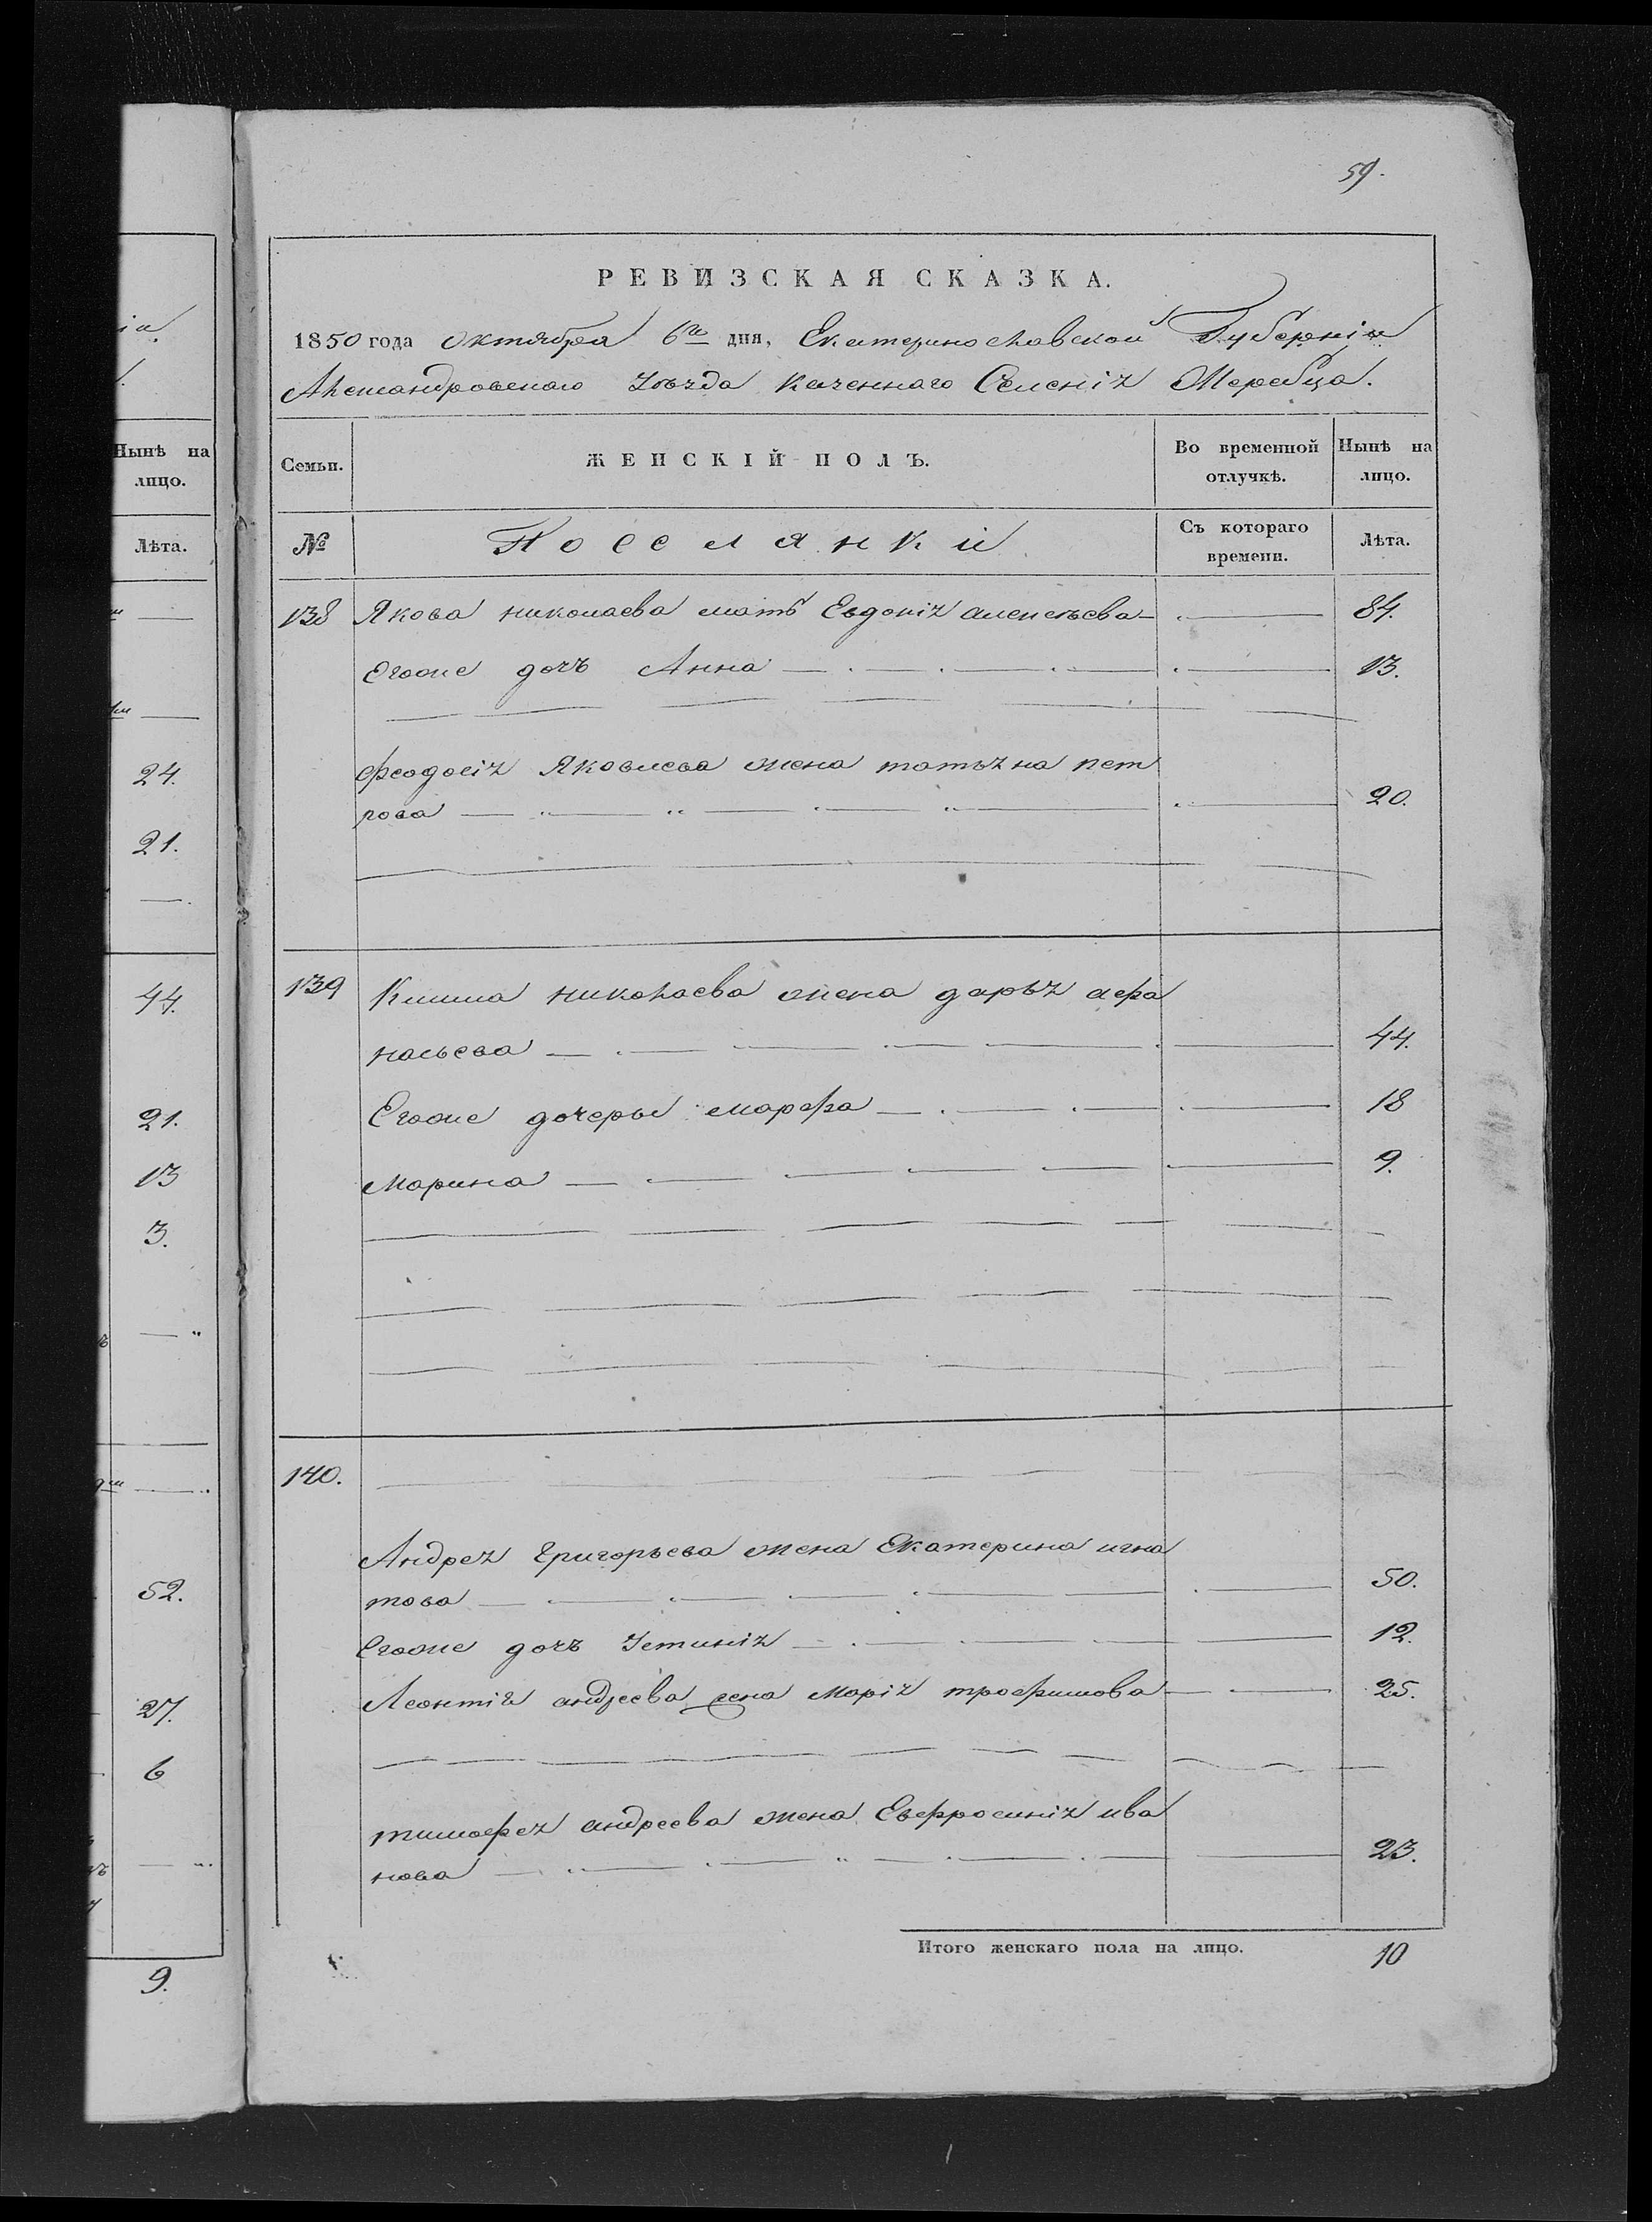 59.
РЕВИЗСКАЯ СКАЗКА.
1850 года Октября 6го дня, Екатеринославской Губерніи
Александровскаго Уѣзда казеннаго Селенія Жеребца.
Нынѣ на
лицо.
Лѣта.
24.
21.
44.
21.
13
3.
52.
27.
6
9.
Семьи. ЖЕНСКІЙ ПОЛЪ. Во временной отлучкѣ. Нынѣ на лицо.
№ Поселянки Съ котораго времени. Лѣта.
138 Якова николаева мать Евдокія алексѣева 84.
Егоже дочь Анна 13.
феодосія Яковлева жена татьяна пет
рова 20.
139 Клима николаева жена дарья афа
насьева 44.
Егоже дочеры марфа 18
Марина 9.
140.
Андрея Григорьева жена Екатерина игна
това 50.
Егоже дочь Устинія 12.
Леонтія андреева жена Марія трофимова 25.
тимофея андреева жена Евфросинія ива
нова 23.
Итого женскаго пола на лицо. 10